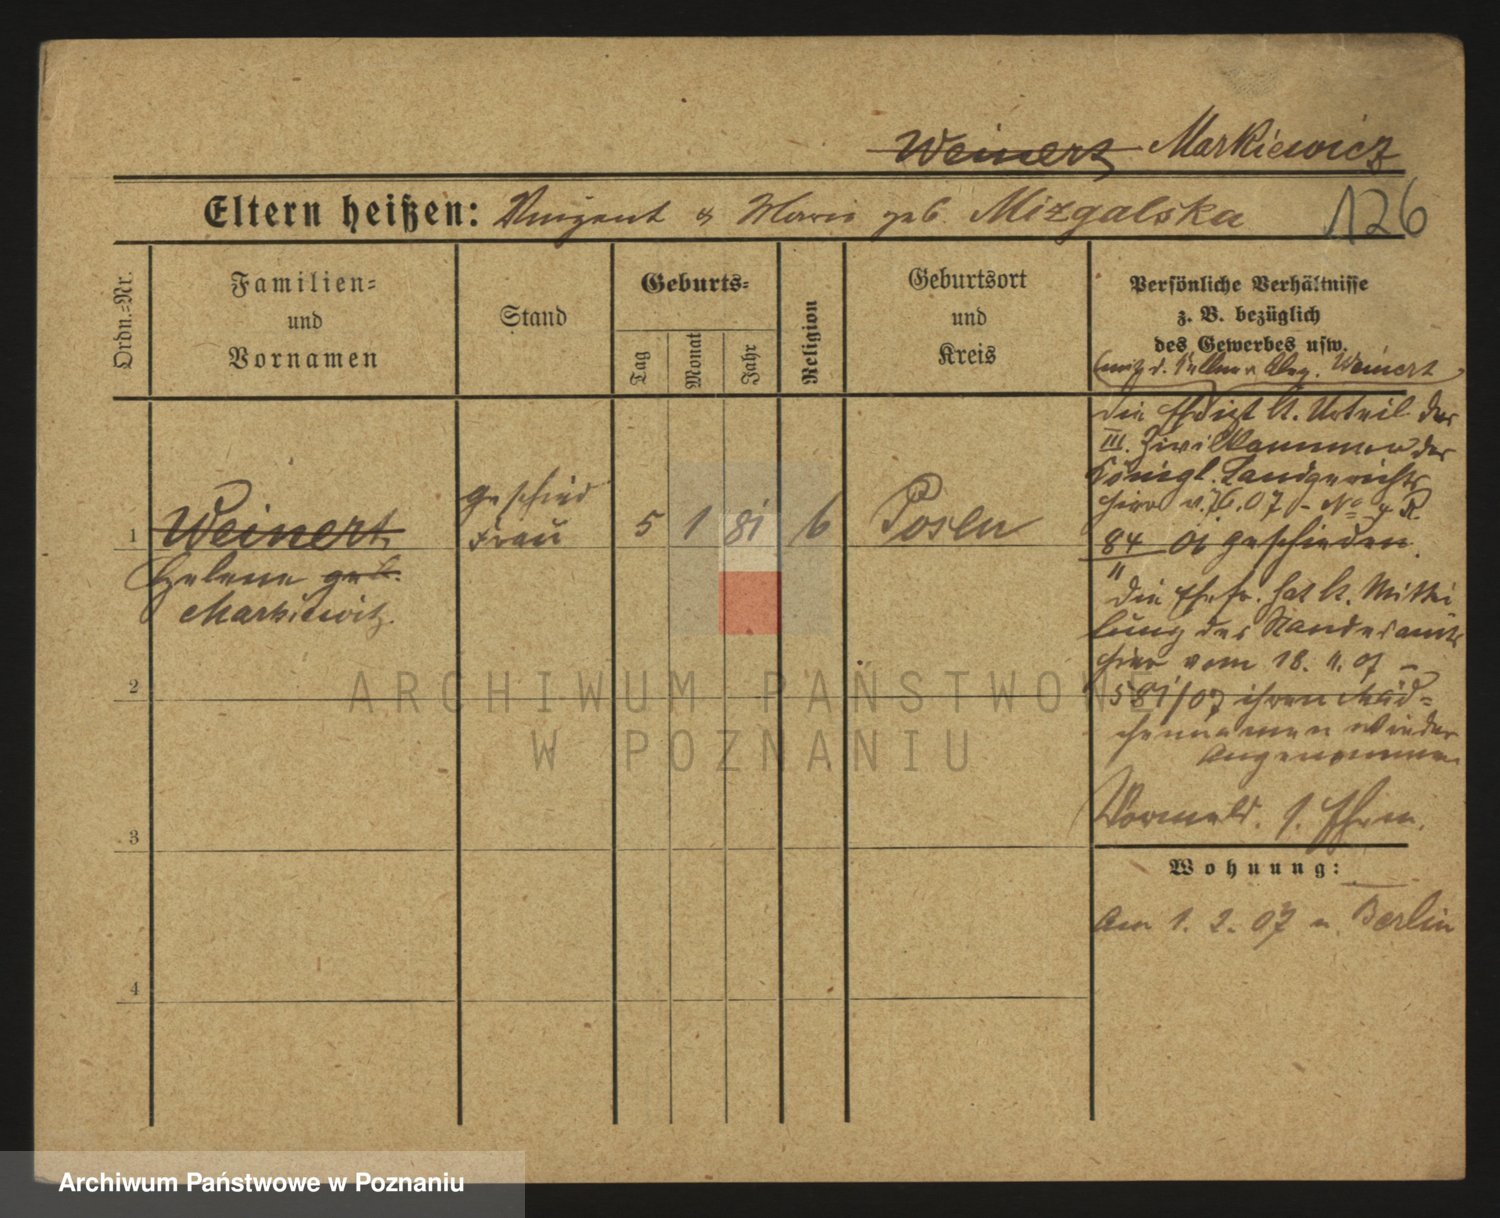 Weinert Markiewicz
Eltern heißen: Vinzent & Marie geb. Mizgalska 126
Ordn.-Nr.
Familien-
und
Vornamen
Stand
Geburts-
Tag
Monat
Jahr
Religion
Geburtsort
und
Kreis
Persönliche Verhältnisse
z. B. bezüglich
des Gewerbes usw.
mit d. Kellner Weinert
1
Weinert
Helene geb.
Markiewitz.
geschied
Frau
5 1 81 6 Posen
die Ehe ist lt. Urteil der
III. Zivilkammer der
Königl. Landgerichts
hier R.
84 geschieden.
die Ehefr. hat lt. Mittei
lung des Standesamts
hier vom 18. 11. 07 -
581/07 ihren Mäd-
chennamen wieder
angenommen
2
3
4
Wohnung:
Am 1. 2. 07 n. Berlin
ARCHIWUM PAŃSTWOWE
W POZNANIU
Archiwum Państwowe w Poznaniu